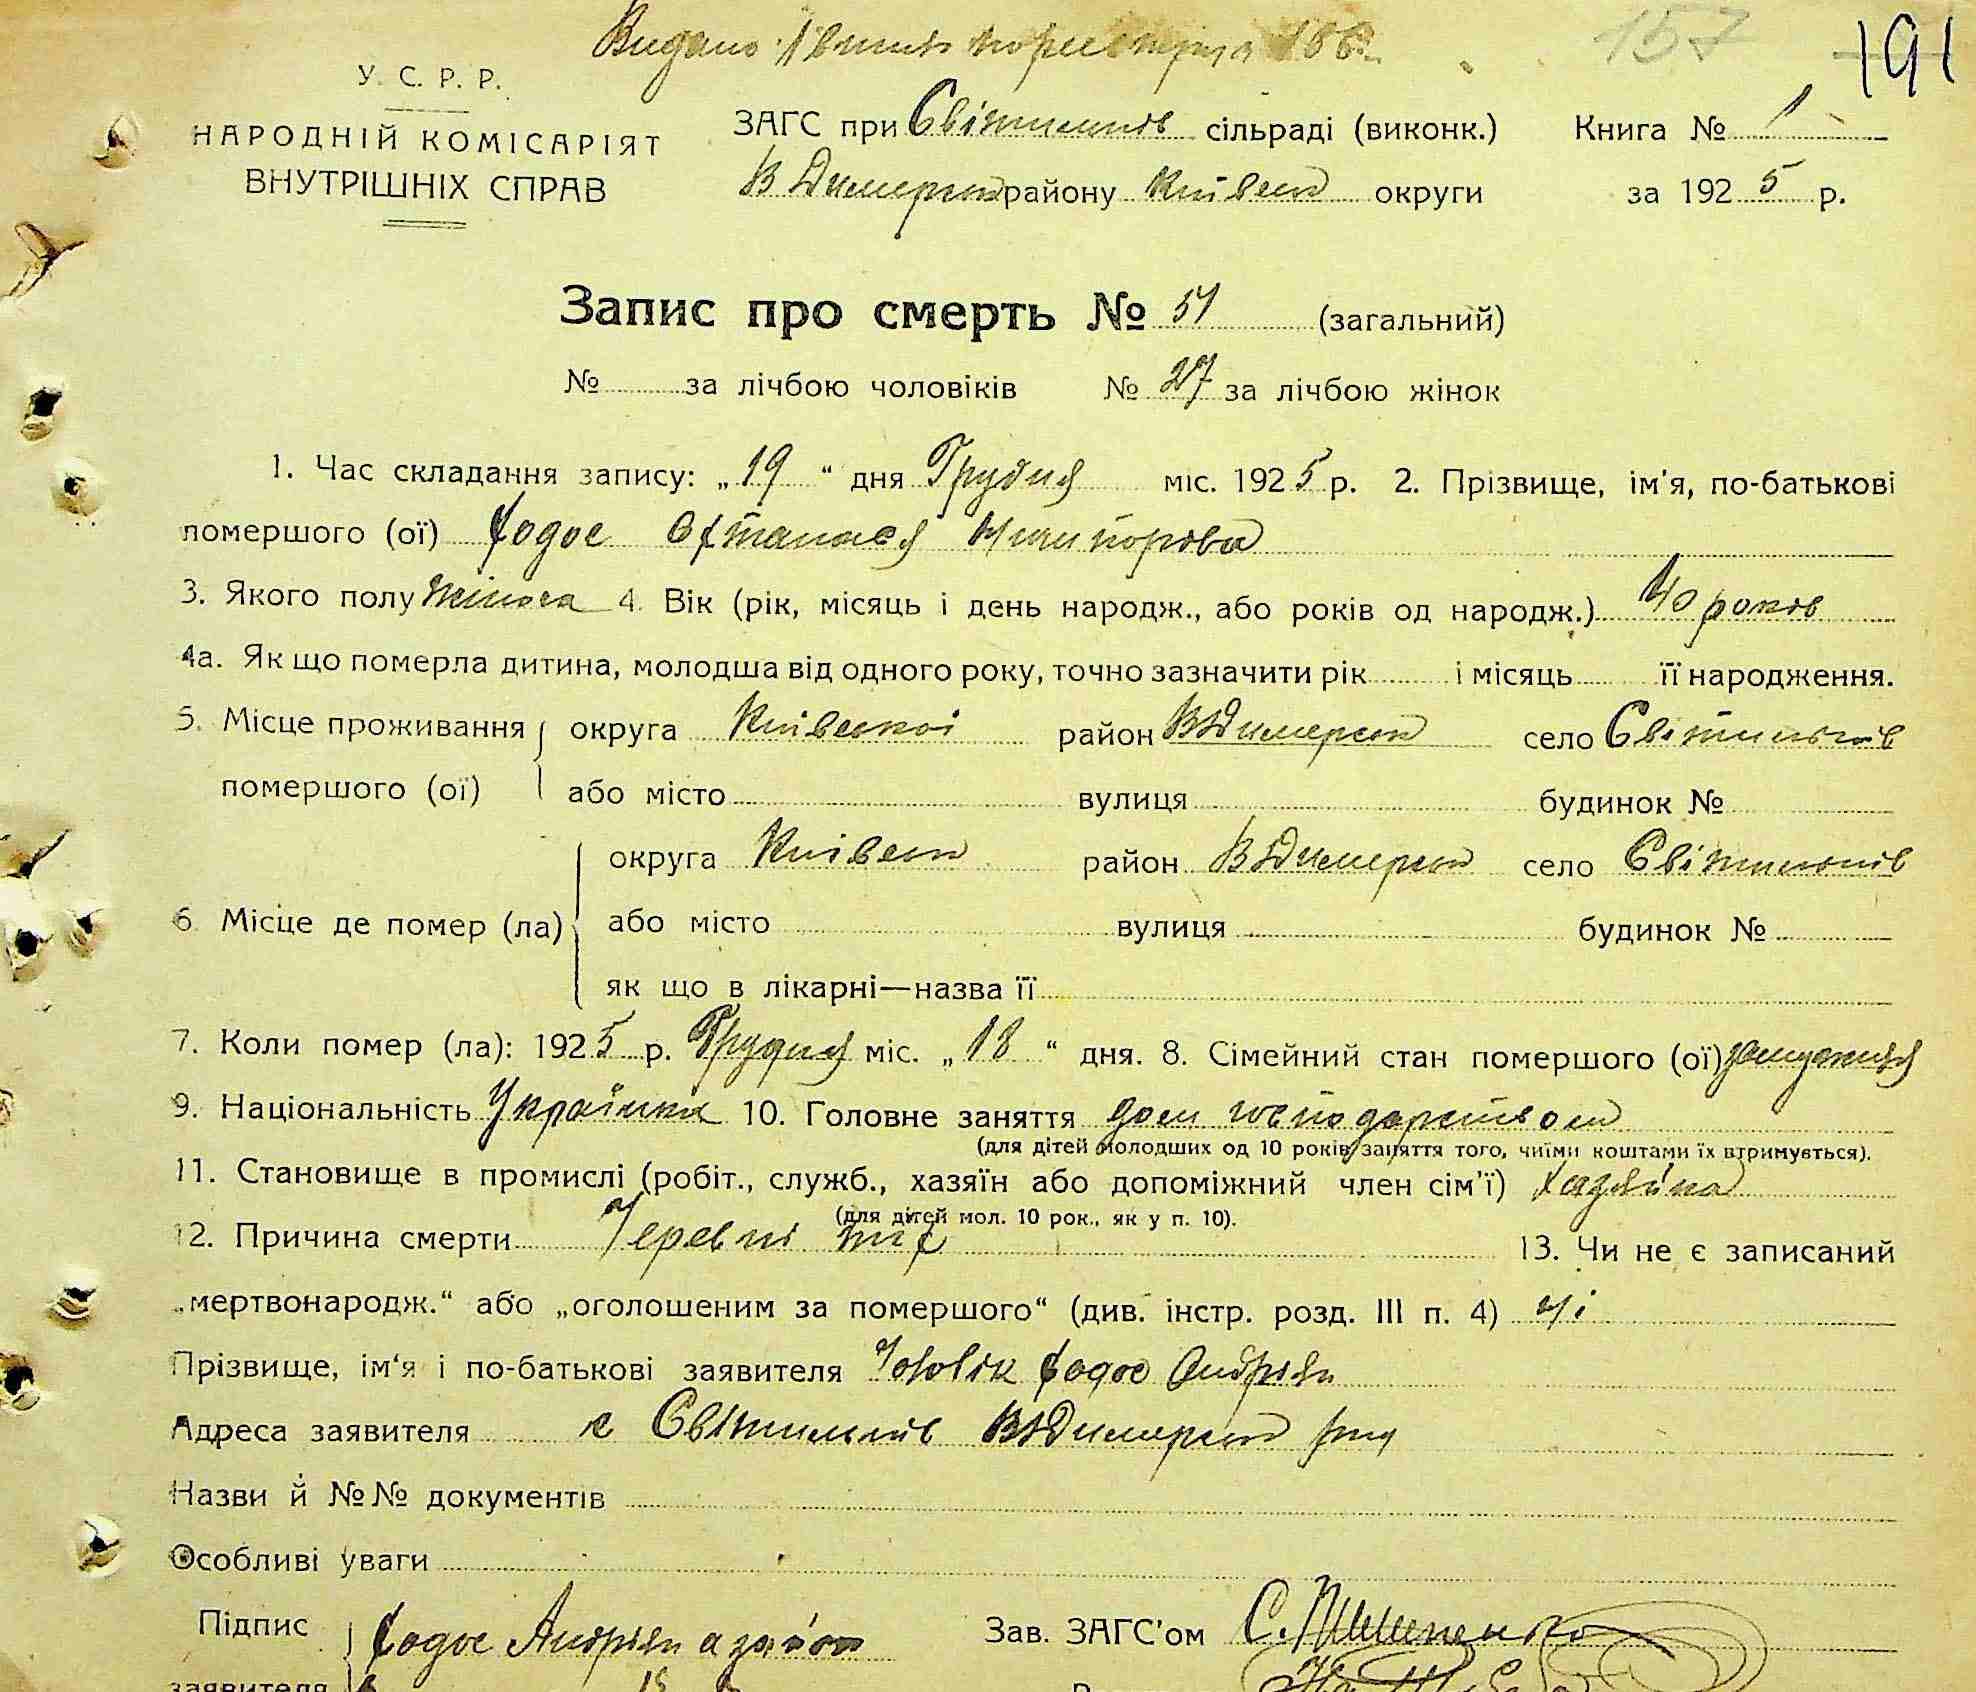 Видано 157 191
У. С. Р. Р.
НАРОДНІЙ КОМІСАРІЯТ
ВНУТРІШНІХ СПРАВ
ЗАГС при Світильнів сільраді (виконк.) Книга № 1
В Димерськ району Київськ округи за 1925 р.
Запис про смерть № 51 (загальний)
№ за лічбою чоловіків № 27 за лічбою жінок
1. Час складання запису: „19“ дня Грудня міс. 1925 р. 2. Прізвище, ім'я, по-батькові
помершого (ої) Фодос Никифорова
3. Якого полу жіноча 4. Вік (рік, місяць і день народж., або років од народж.) 40 років
4а. Як що померла дитина, молодша від одного року, точно зазначити рік і місяць її народження.
5. Місце проживання округа Київської район ВДимерськ село Світильнів
помершого (ої) або місто вулиця будинок №
округа Київськ район ВДимерськ село Світильнів
6. Місце де помер (ла) або місто вулиця будинок №
як що в лікарні—назва її
7. Коли помер (ла): 1925 р. Грудня міс. „18“ дня. 8. Сімейний стан помершого (ої) замужня
9. Національність Українка 10. Головне заняття дом господарством
(для дітей молодших од 10 років заняття того, чиїми коштами їх втримується).
11. Становище в промислі (робіт., служб., хазяїн або допоміжний член сім'ї) хазяйка
(для дітей мол. 10 рок., як у п. 10).
12. Причина смерти Черевні тиф 13. Чи не є записаний
„мертвонародж.“ або „оголошеним за помершого“ (див. інстр. розд. III п. 4) ні
Прізвище, ім'я і по-батькові заявителя Чоловік Фодос Андріян
Адреса заявителя с Світильнів ВДимерськ р-ну
Назви й №№ документів
Особливі уваги
Підпис Фодос Андріян Зав. ЗАГС'ом
заявителя